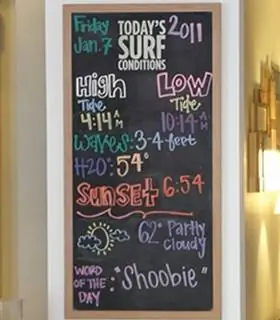 Friday TODAY'S 2011
Jan. 7 SURF
CONDITIONS
High LOW
Tide Tide
4:14 AM 10:14 AM
Waves: 3-4 feet
H2O: 54°
SUNSET 6:54
62° Partly
Cloudy
WORD
OF THE : "Shoobie"
DAY